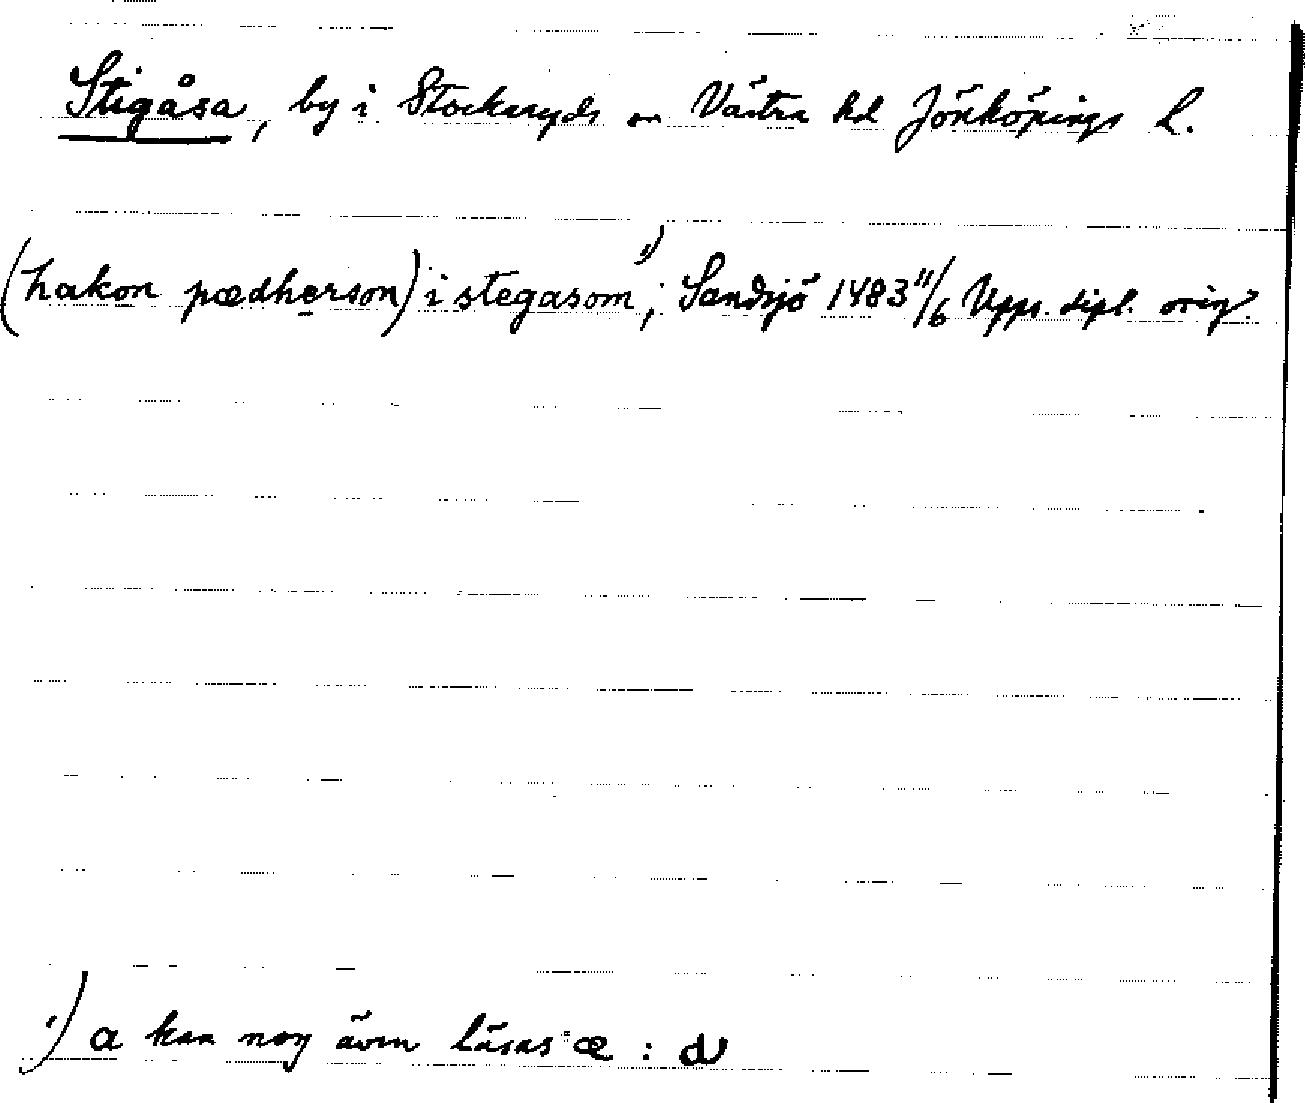 Stigåsa, by i Stockaryds sn Västra hd Jönköpings l.
(hakon pædherson) i stegasom ¹⁾; Sandsjö 1483 11/6 Upps. dipl. orig.
¹⁾ a kan nog även läsas æ :